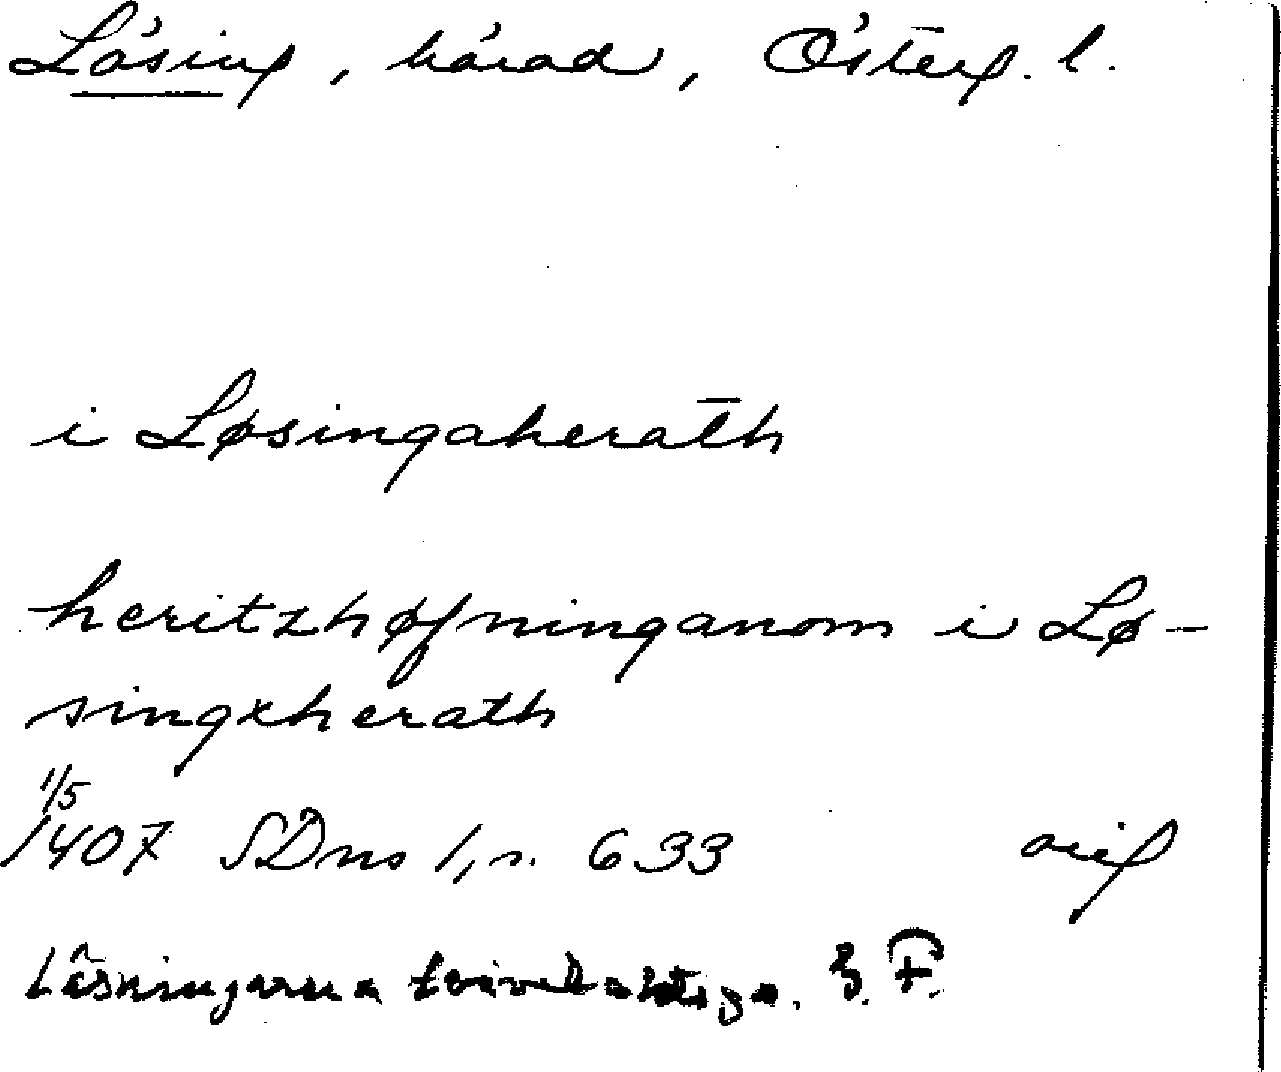 Lösing, härad, Österg. l.
i Løsingaherath
heritzhøfninganom i Lø-
singxherath
1/5
1407 SDns 1, s. 633 orig
Läsningarna tvivelaktiga. S. F.